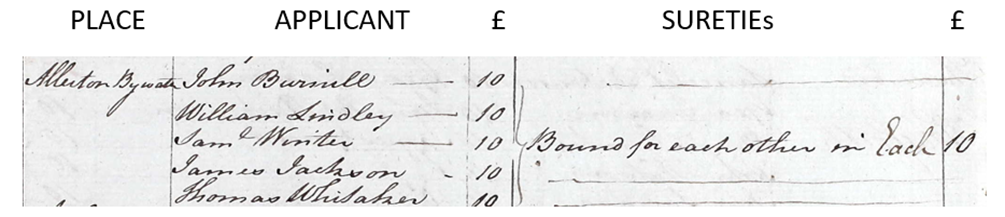 PLACE APPLICANT £ SURETIEs £
Allerton Bywater John Burnill 10
William Lindley 10
Saml Winter 10 Bound for each other in Each 10
James Jackson 10
Thomas Whitaker 10